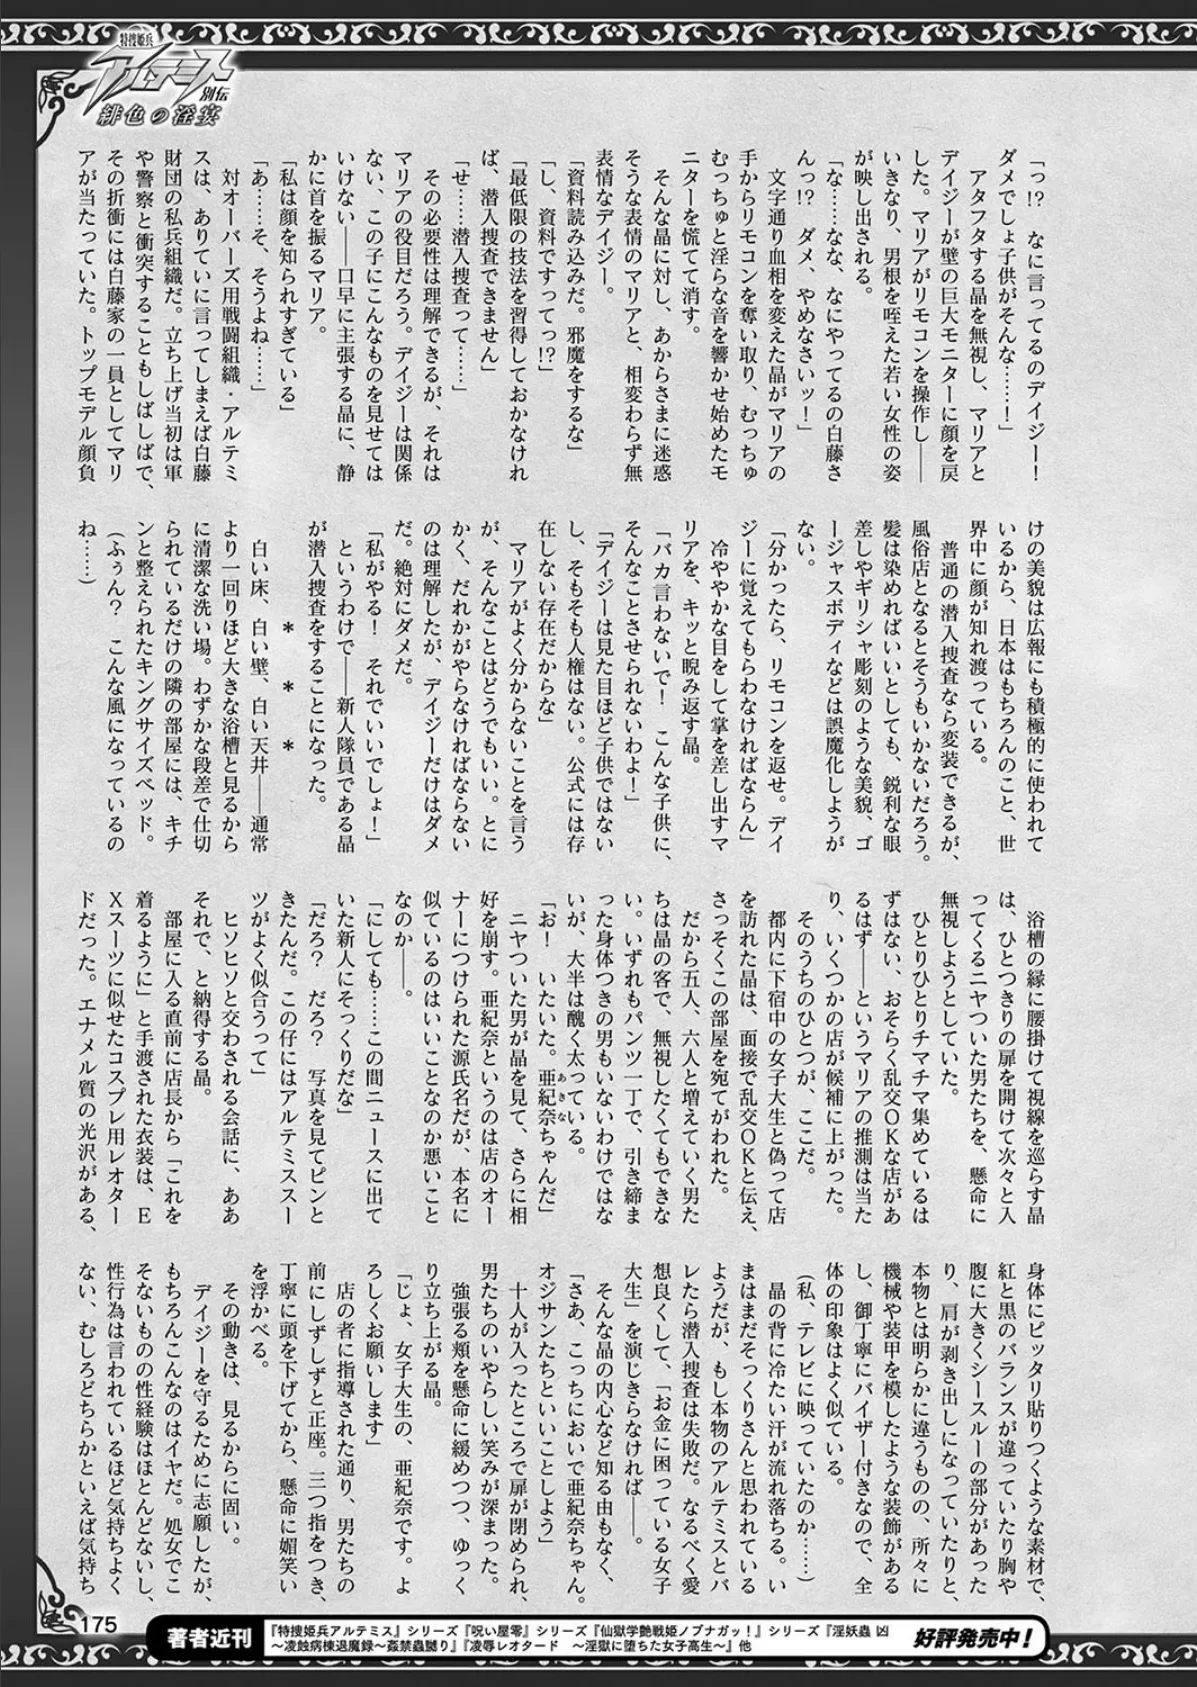 特捜姫兵
アルテミス
別伝
緋色の淫宴
「っ!? なに言ってるのデイジー！
ダメでしょ子供がそんな……！」
アタフタする晶を無視し、マリアと
デイジーが壁の巨大モニターに顔を戻
した。マリアがリモコンを操作し――
いきなり、男根を咥えた若い女性の姿
が映し出される。
「な……なな、なにやってるの白藤さ
んっ!? ダメ、やめなさいッ！」
文字通り血相を変えた晶がマリアの
手からリモコンを奪い取り、むっちゅ
むっちゅと淫らな音を響かせ始めたモ
ニターを慌てて消す。
そんな晶に対し、あからさまに迷惑
そうな表情のマリアと、相変わらず無
表情なデイジー。
「資料読み込みだ。邪魔をするな」
「し、資料ですってっ!?」
「最低限の技法を習得しておかなけれ
ば、潜入捜査できません」
「せ……潜入捜査って……」
その必要性は理解できるが、それは
マリアの役目だろう。デイジーは関係
ない、この子にこんなものを見せては
いけない――口早に主張する晶に、静
かに首を振るマリア。
「私は顔を知られすぎている」
「あ……そ、そうよね……」
対オーバーズ用戦闘組織・アルテミ
スは、ありていに言ってしまえば白藤
財団の私兵組織だ。立ち上げ当初は軍
や警察と衝突することもしばしばで、
その折衝には白藤家の一員としてマリ
アが当たっていた。トップモデル顔負
けの美貌は広報にも積極的に使われて
いるから、日本はもちろんのこと、世
界中に顔が知れ渡っている。
普通の潜入捜査なら変装できるが、
風俗店となるとそうもいかないだろう。
髪は染めればいいとしても、鋭利な眼
差しやギリシャ彫刻のような美貌、ゴ
ージャスボディなどは誤魔化しようが
ない。
「分かったら、リモコンを返せ。デイ
ジーに覚えてもらわなければならん」
冷ややかな目をして掌を差し出すマ
リアを、キッと睨み返す晶。
「バカ言わないで！ こんな子供に、
そんなことさせられないわよ！」
「デイジーは見た目ほど子供ではない
し、そもそも人権はない。公式には存
在しない存在だからな」
マリアがよく分からないことを言う
が、そんなことはどうでもいい。とに
かく、だれかがやらなければならない
のは理解したが、デイジーだけはダメ
だ。絶対にダメだ。
「私がやる！ それでいいでしょ！」
というわけで――新人隊員である晶
が潜入捜査をすることになった。
＊ ＊ ＊
白い床、白い壁、白い天井――通常
より一回りほど大きな浴槽と見るから
に清潔な洗い場。わずかな段差で仕切
られているだけの隣の部屋には、キチ
ンと整えられたキングサイズベッド。
（ふぅん？ こんな風になっているの
ね……）
浴槽の縁に腰掛けて視線を巡らす晶
は、ひとつきりの扉を開けて次々と入
ってくるニヤついた男たちを、懸命に
無視しようとしていた。
ひとりひとりチマチマ集めているは
ずはない、おそらく乱交ＯＫな店があ
るはず――というマリアの推測は当た
り、いくつかの店が候補に上がった。
そのうちのひとつが、ここだ。
都内に下宿中の女子大生と偽って店
を訪れた晶は、面接で乱交ＯＫと伝え、
さっそくこの部屋を宛てがわれた。
だから五人、六人と増えていく男た
ちは晶の客で、無視したくてもできな
い。いずれもパンツ一丁で、引き締ま
った身体つきの男もいないわけではな
いが、大半は醜く太っている。
「お！ いたいた。亜紀奈(あきな)ちゃんだ」
ニヤついた男が晶を見て、さらに相
好を崩す。亜紀奈というのは店のオー
ナーにつけられた源氏名だが、本名に
似ているのはいいことなのか悪いこと
なのか――。
「にしても……この間ニュースに出て
いた新人にそっくりだな」
「だろ？ だろ？ 写真を見てピンと
きたんだ。この仔にはアルテミススー
ツがよく似合うって」
ヒソヒソと交わされる会話に、ああ
それで、と納得する晶。
部屋に入る直前に店長から「これを
着るように」と手渡された衣装は、Ｅ
Ｘスーツに似せたコスプレ用レオター
ドだった。エナメル質の光沢がある、
身体にピッタリ貼りつくような素材で、
紅と黒のバランスが違っていたり胸や
腹に大きくシースルーの部分があった
り、肩が剥き出しになっていたりと、
本物とは明らかに違うものの、所々に
機械や装甲を模したような装飾がある
し、御丁寧にバイザー付きなので、全
体の印象はよく似ている。
（私、テレビに映っていたのか……）
晶の背に冷たい汗が流れ落ちる。い
まはまだそっくりさんと思われている
ようだが、もし本物のアルテミスとバ
レたら潜入捜査は失敗だ。なるべく愛
想良くして、「お金に困っている女子
大生」を演じきらなければ――。
そんな晶の内心など知る由もなく、
「さあ、こっちにおいで亜紀奈ちゃん。
オジサンたちといいことしよう」
十人が入ったところで扉が閉められ、
男たちのいやらしい笑みが深まった。
強張る頬を懸命に緩めつつ、ゆっく
り立ち上がる晶。
「じょ、女子大生の、亜紀奈です。よ
ろしくお願いします」
店の者に指導された通り、男たちの
前にしずしずと正座。三つ指をつき、
丁寧に頭を下げてから、懸命に媚笑い
を浮かべる。
その動きは、見るからに固い。
デイジーを守るために志願したが、
もちろんこんなのはイヤだ。処女でこ
そないものの性経験はほとんどないし、
性行為は言われているほど気持ちよく
ない、むしろどちらかといえば気持ち
175
著者近刊
『特捜姫兵アルテミス』シリーズ『呪い屋零』シリーズ『仙獄学艶戦姫ノブナガッ！』シリーズ『淫妖蟲 凶
～凌蝕病棟退魔録～姦禁蟲嬲り』『凌辱レオタード ～淫獄に堕ちた女子高生～』他
好評発売中！